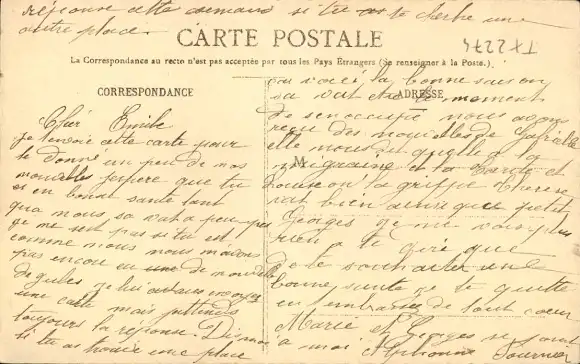 réponse cette semaine si tu as te cherche une
autre place.
CARTE POSTALE
TX2274
La Correspondance au recto n'est pas acceptée par tous les Pays Étrangers (Se renseigner à la Poste.)
CORRESPONDANCE
Cher Emile
je t'envoie cette carte pour
te donné un peu de nos
nouvelles j'espere que tu
es en bonne santé tant
qua nous sa vat a peu pres
je ne sait pas si tu est
comme nous nous navons
pas encore eu une de nouvelle
de jules je lui avais envoyer
une carte mais j'attends
toujours la réponse. Dis moi
si tu as trouvé une place
car voici la bonne saison
ADRESSE
sa vat etre le moment
de s'en occupé nous avons
reçu des nouvelles de Gabrielle
elle nous dit quelle a la
M
migraine et la tante et
la grippe therese
vat bien ainsi que petit
Georges je ne vois plus
rien a te dire que
de te souhaiter une
bonne sante je te quitte
en t'embrassant de tout coeur
Marie et Georges se joint
a moi. Alphonse Fournier